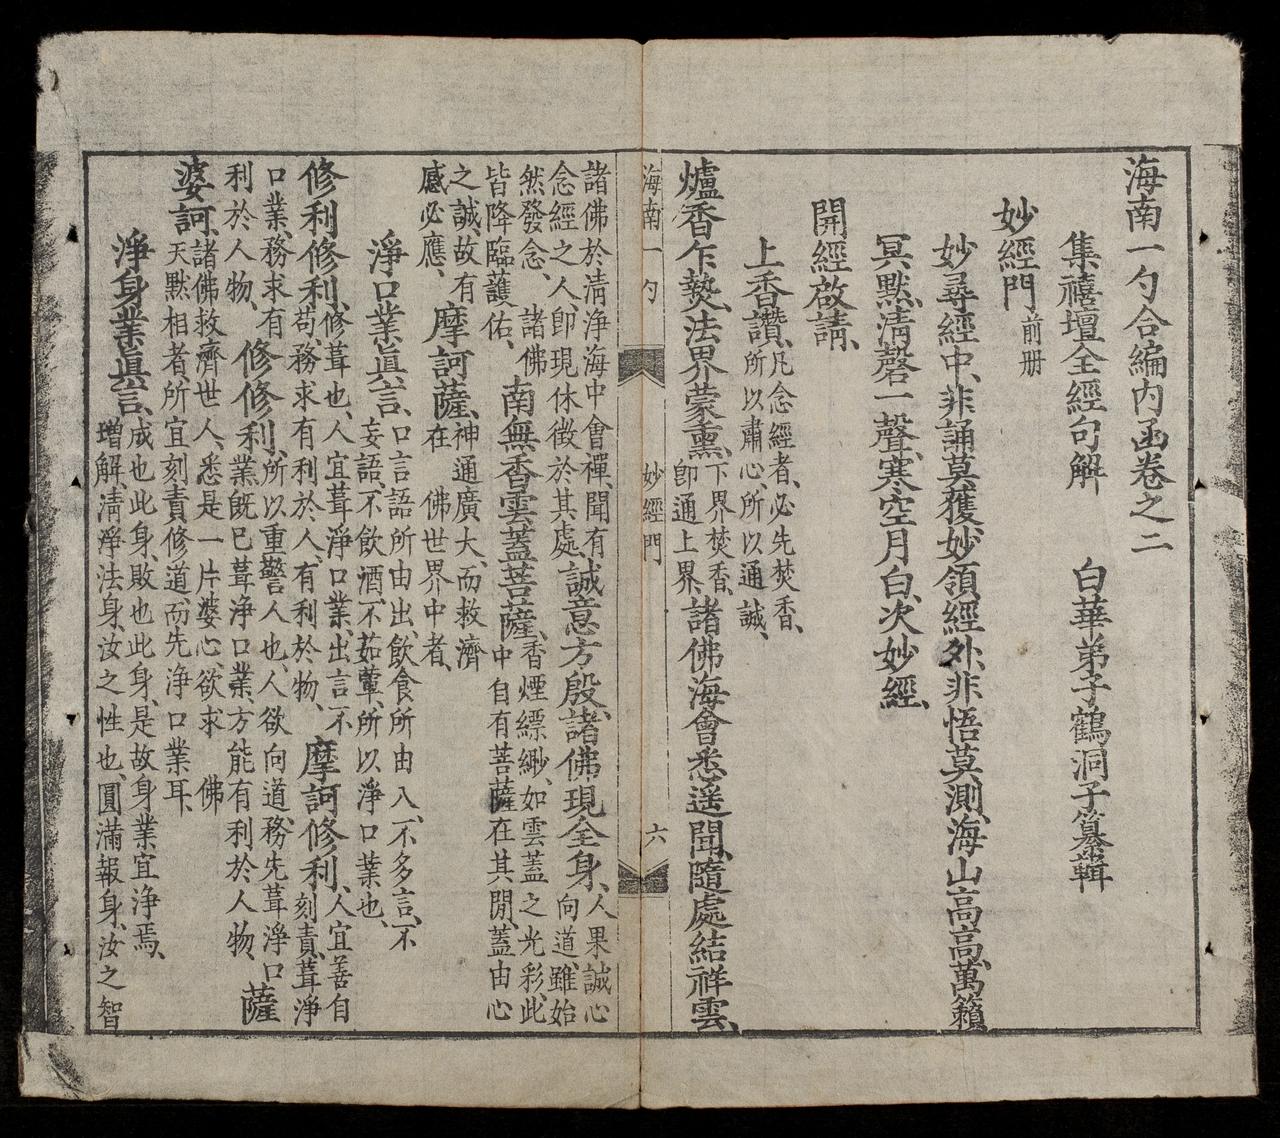 海南一勺合編內函卷之二
集禧壇全經句解　白華弟子鶴洞子纂輯
妙經門前册
妙尋經中、非誦莫獲、妙領經外、非悟莫測、海山高高、萬籟
冥默、清磬一聲、寒空月白、次妙經、
開經啟請、
上香讚、凡念經者、必先焚香、所以肅心、所以通誠、
爐香乍爇、法界蒙熏、下界焚香、卽通上界、諸佛海會悉遥聞、隨處結祥雲、
海南一勺　妙經門　六
諸佛於清浄海中會禪、聞有念經之人、卽現休徵於其處、誠意方殷、諸佛現全身、人果誠心向道、雖始
然發念、諸佛皆降臨護佑、南無香雲蓋菩薩、香煙縹緲、如雲蓋之光彩、此中自有菩薩在其閒、蓋由心
之誠、故有感必應、摩訶薩、神通廣大、而救濟在　佛世界中者、
淨口業眞言、口言語所由出、飲食所由入、不多言、不妄語、不飲酒、不茹葷、所以淨口業也、
修利修利、修葺也、人宜葺淨口業、出言不苟、務求有利於人、有利於物、摩訶修利、人宜善自刻責、葺淨
口業、務求有利於人物、修修利、所以重警人也、人欲向道、務先葺淨口業、旣已葺淨口業、方能有利於人物、薩
婆訶、諸佛救濟世人、悉是一片婆心、欲求　佛天默相者、所宜刻責修道、而先淨口業耳、
淨身業眞言、成也此身、敗也此身、是故身業宜淨焉、增解、清淨法身、汝之性也、圓滿報身、汝之智